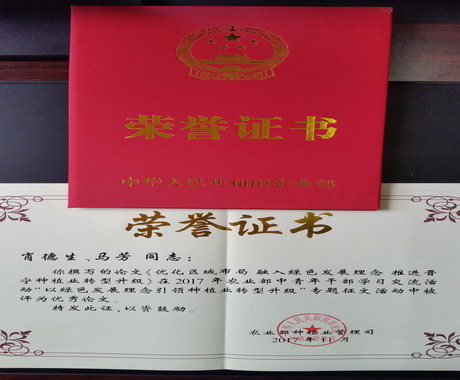 荣誉证书
中华人民共和国农业部
荣誉证书
肖德生、马芳 同志：
你撰写的论文《优化区域布局 融入绿色发展理念 推进晋
宁种植业转型升级》在2017年农业部中青年干部学习交流活
动“以绿色发展理念引领种植业转型升级”专题征文活动中被
评为优秀论文。
特发此证，以资鼓励。
农业部种植业管理司
2017年11月